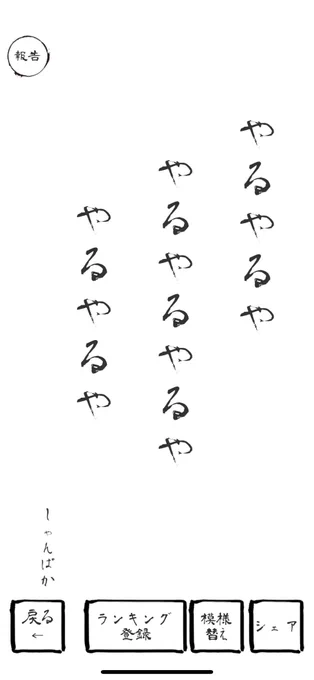 報告
やるやるや
やるやるやるや
やるやるや
しゃんぱか
戻る
←
ランキング
登録
模様
替え
シェア